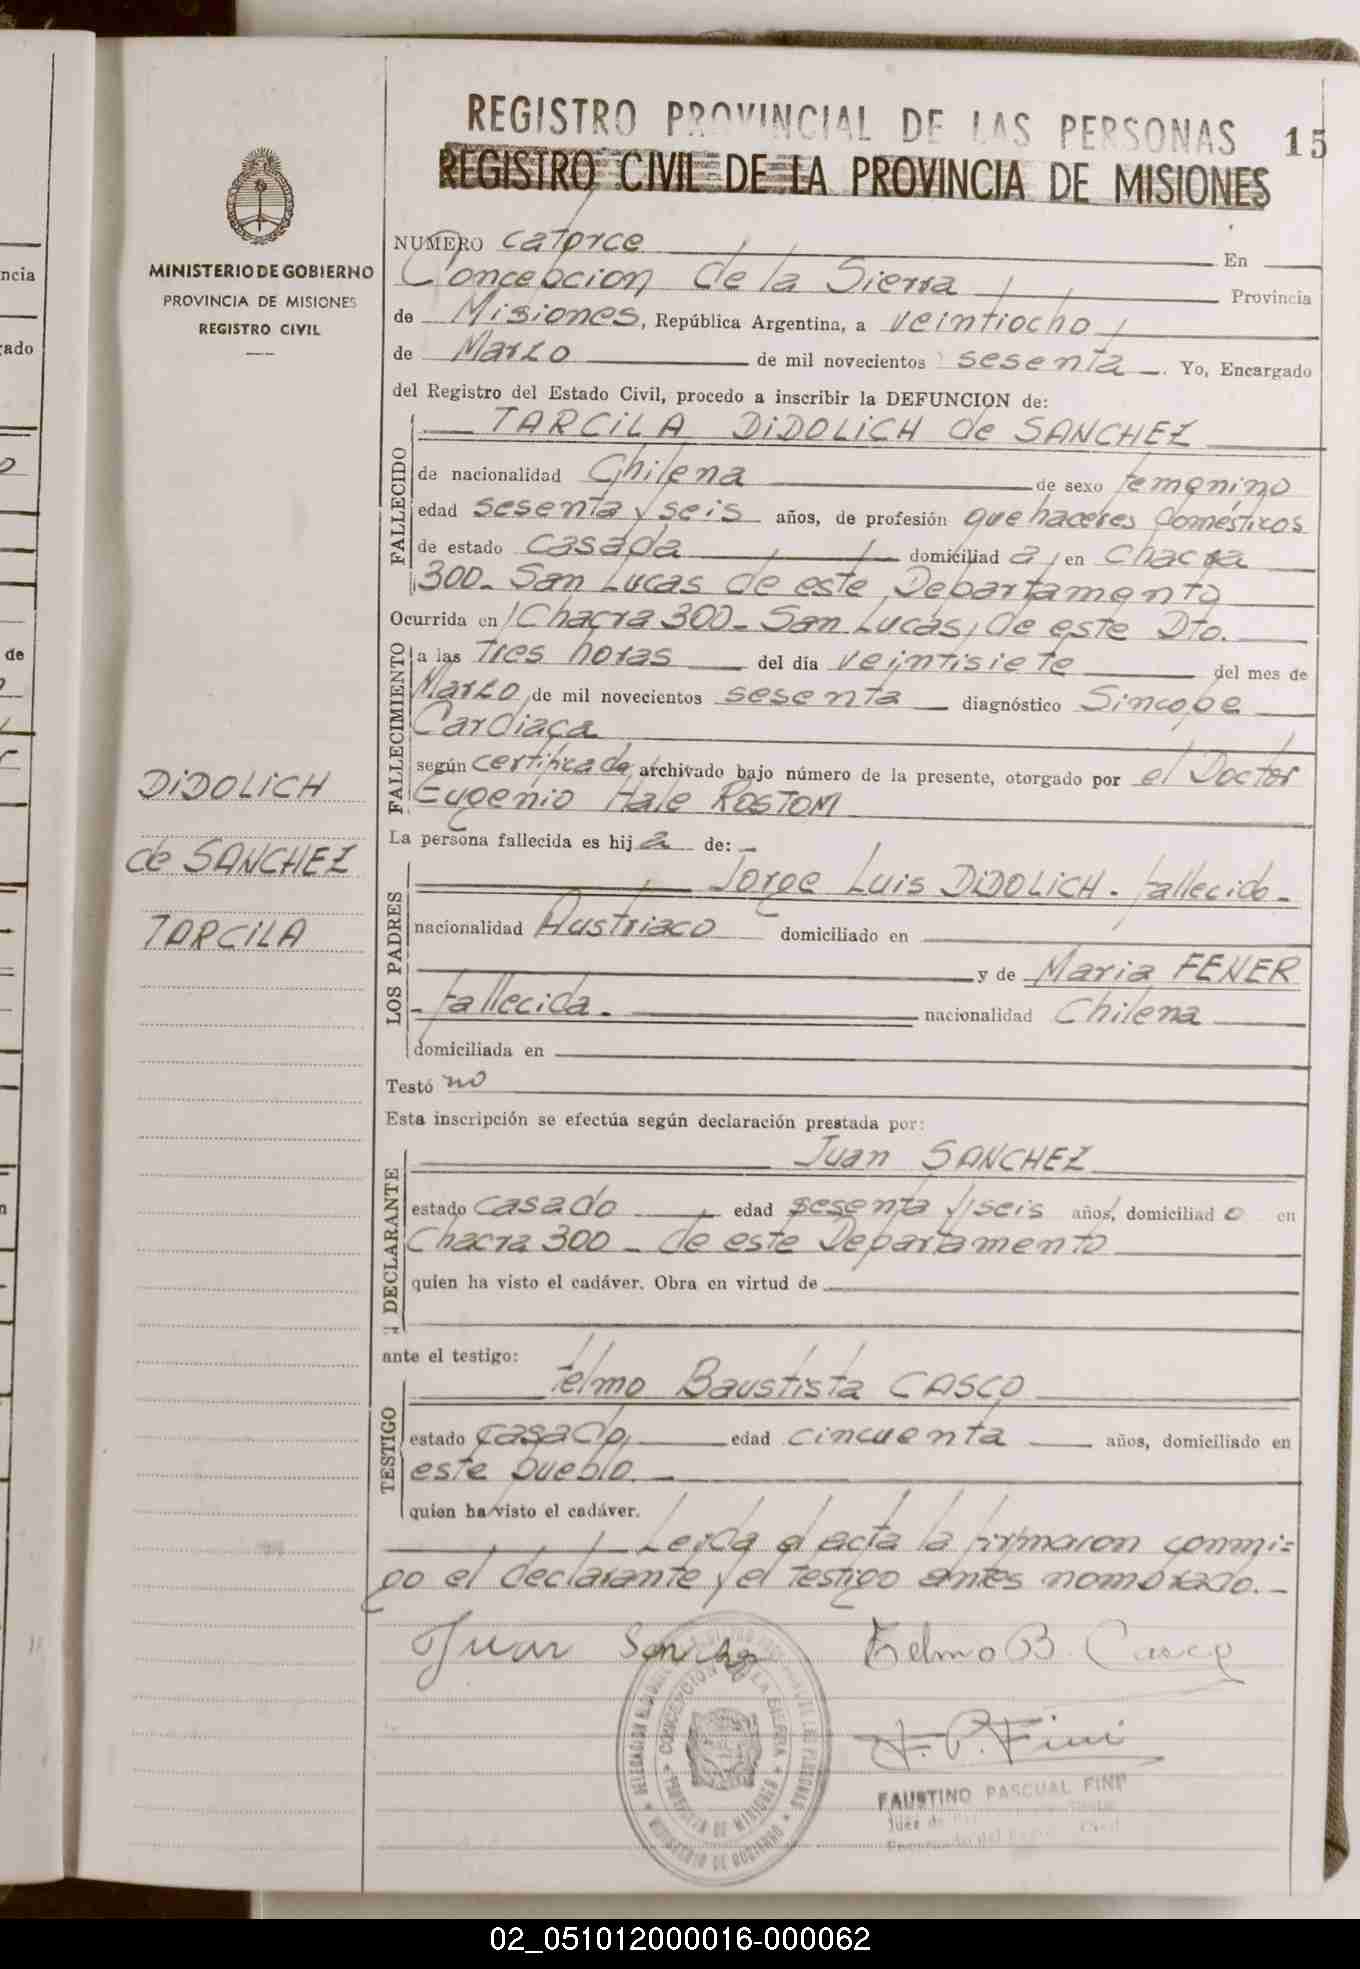 REGISTRO PROVINCIAL DE LAS PERSONAS 15
REGISTRO CIVIL DE LA PROVINCIA DE MISIONES
MINISTERIO DE GOBIERNO
PROVINCIA DE MISIONES
REGISTRO CIVIL
NUMERO catorce En
Concepcion de la Sierra Provincia
de Misiones, República Argentina, a veintiocho
de Marzo de mil novecientos sesenta. Yo, Encargado
del Registro del Estado Civil, procedo a inscribir la DEFUNCION de:
TARCILA DIDOLICH de SANCHEZ
FALLECIDO
de nacionalidad Chilena de sexo femenino
edad sesenta y seis años, de profesión que haceres domésticos
de estado casada domiciliad a en chacra
300- San Lucas de este Departamento
FALLECIMIENTO
Ocurrida en Chacra 300- San Lucas, de este Dto.
a las tres horas del día veintisiete del mes de
Marzo de mil novecientos sesenta diagnóstico Sincope
Cardiaca
según certificado archivado bajo número de la presente, otorgado por el Doctor
Eugenio Hale ROSTOM
DIDOLICH
de SANCHEZ
TARCILA
La persona fallecida es hij a de:-
LOS PADRES
Jorge Luis DIDOLICH- fallecido-
nacionalidad Austriaco domiciliado en
y de Maria FENER
- fallecida. nacionalidad Chilena
domiciliada en
Testó no
Esta inscripción se efectúa según declaración prestada por:
DECLARANTE
Juan SANCHEZ
estado casado edad sesenta y seis años, domiciliad o en
Chacra 300 - de este Departamento
quien ha visto el cadáver. Obra en virtud de
ante el testigo:
TESTIGO
Telmo Baustista CASCO
estado casado edad cincuenta años, domiciliado en
este pueblo.-
quien ha visto el cadáver.
Leida el acta la firmaron conmi=
go el declarante y el testigo antes nombrado.-
Juan Sanchez Telmo B. Casco
F. P. Fini
FAUSTINO PASCUAL FINI
Juez de
CONCEPCION DE LA SIERRA
PROVINCIA DE MISIONES
MINISTERIO DE GOBIERNO
02_051012000016-000062